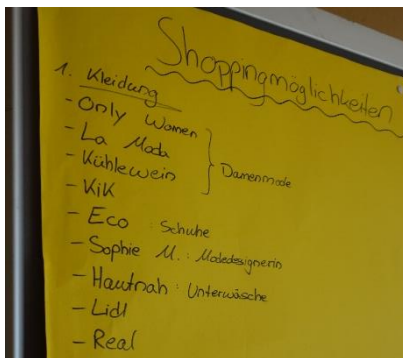 Shoppingmöglichkeiten
1. Kleidung
- Only Women
- La Moda
- Kühlewein
Damenmode
- KiK
- Eco : Schuhe
- Sophie M. : Modedesignerin
- Hautnah : Unterwäsche
- Lidl
- Real